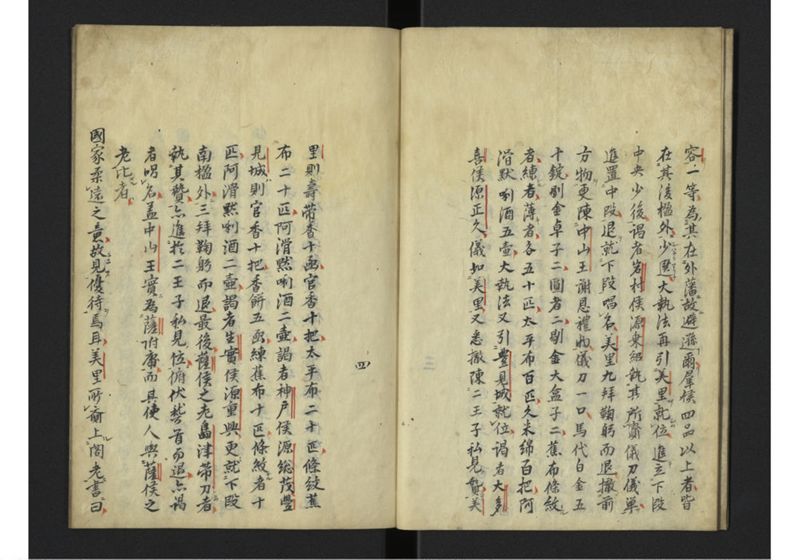 容一等為其在外藩故避藩爾羣侯四品以上者皆
在其後楹外少選大執法再引美里就位進立下段
中央少後謁者岩村侯源東細執其所賫儀刀儀單
進置中段退就下段唱名美里九拜鞠躬而退撤前
方物更陳中山王謝恩禮物儀刀一口馬代白金五
十錠剔金卓子二圍者二剔金大盒子二蕉布條紋
者練者薄者各五十匹太平布百匹久米綿百把阿
滑默唎酒五壺大執法又引豐見城就位謁者大多
喜侯源正久儀如美里又悉撤陳二王子私見贄美
里則壽帶香十函官香十把太平布二十匹條紋蕉
布二十匹阿滑黙唎酒二壺謁者神戶侯源總茂豐
見城則官香十把香餅五函練蕉布十匹條紋者十
匹阿滑黙唎酒二壺謁者生實侯源重興更就下段
南楹外三拜鞠躬而退最後薩侯之老島津帶刀者
執其贄亦進於二王子私見位俯伏嵆首而退亦謁
者唱名蓋中山王實為薩附庸而其使人與薩侯之
老比者
國家柔遠之意故見優待焉耳美里所齎上閣老書曰
四